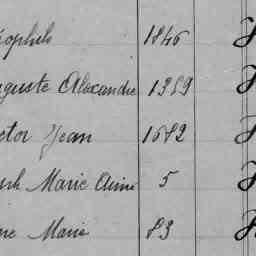 éophile 1846
uguste Alexandre 1359
ctor Jean 1682
eph Marie Aimé 5
ne Marie 83